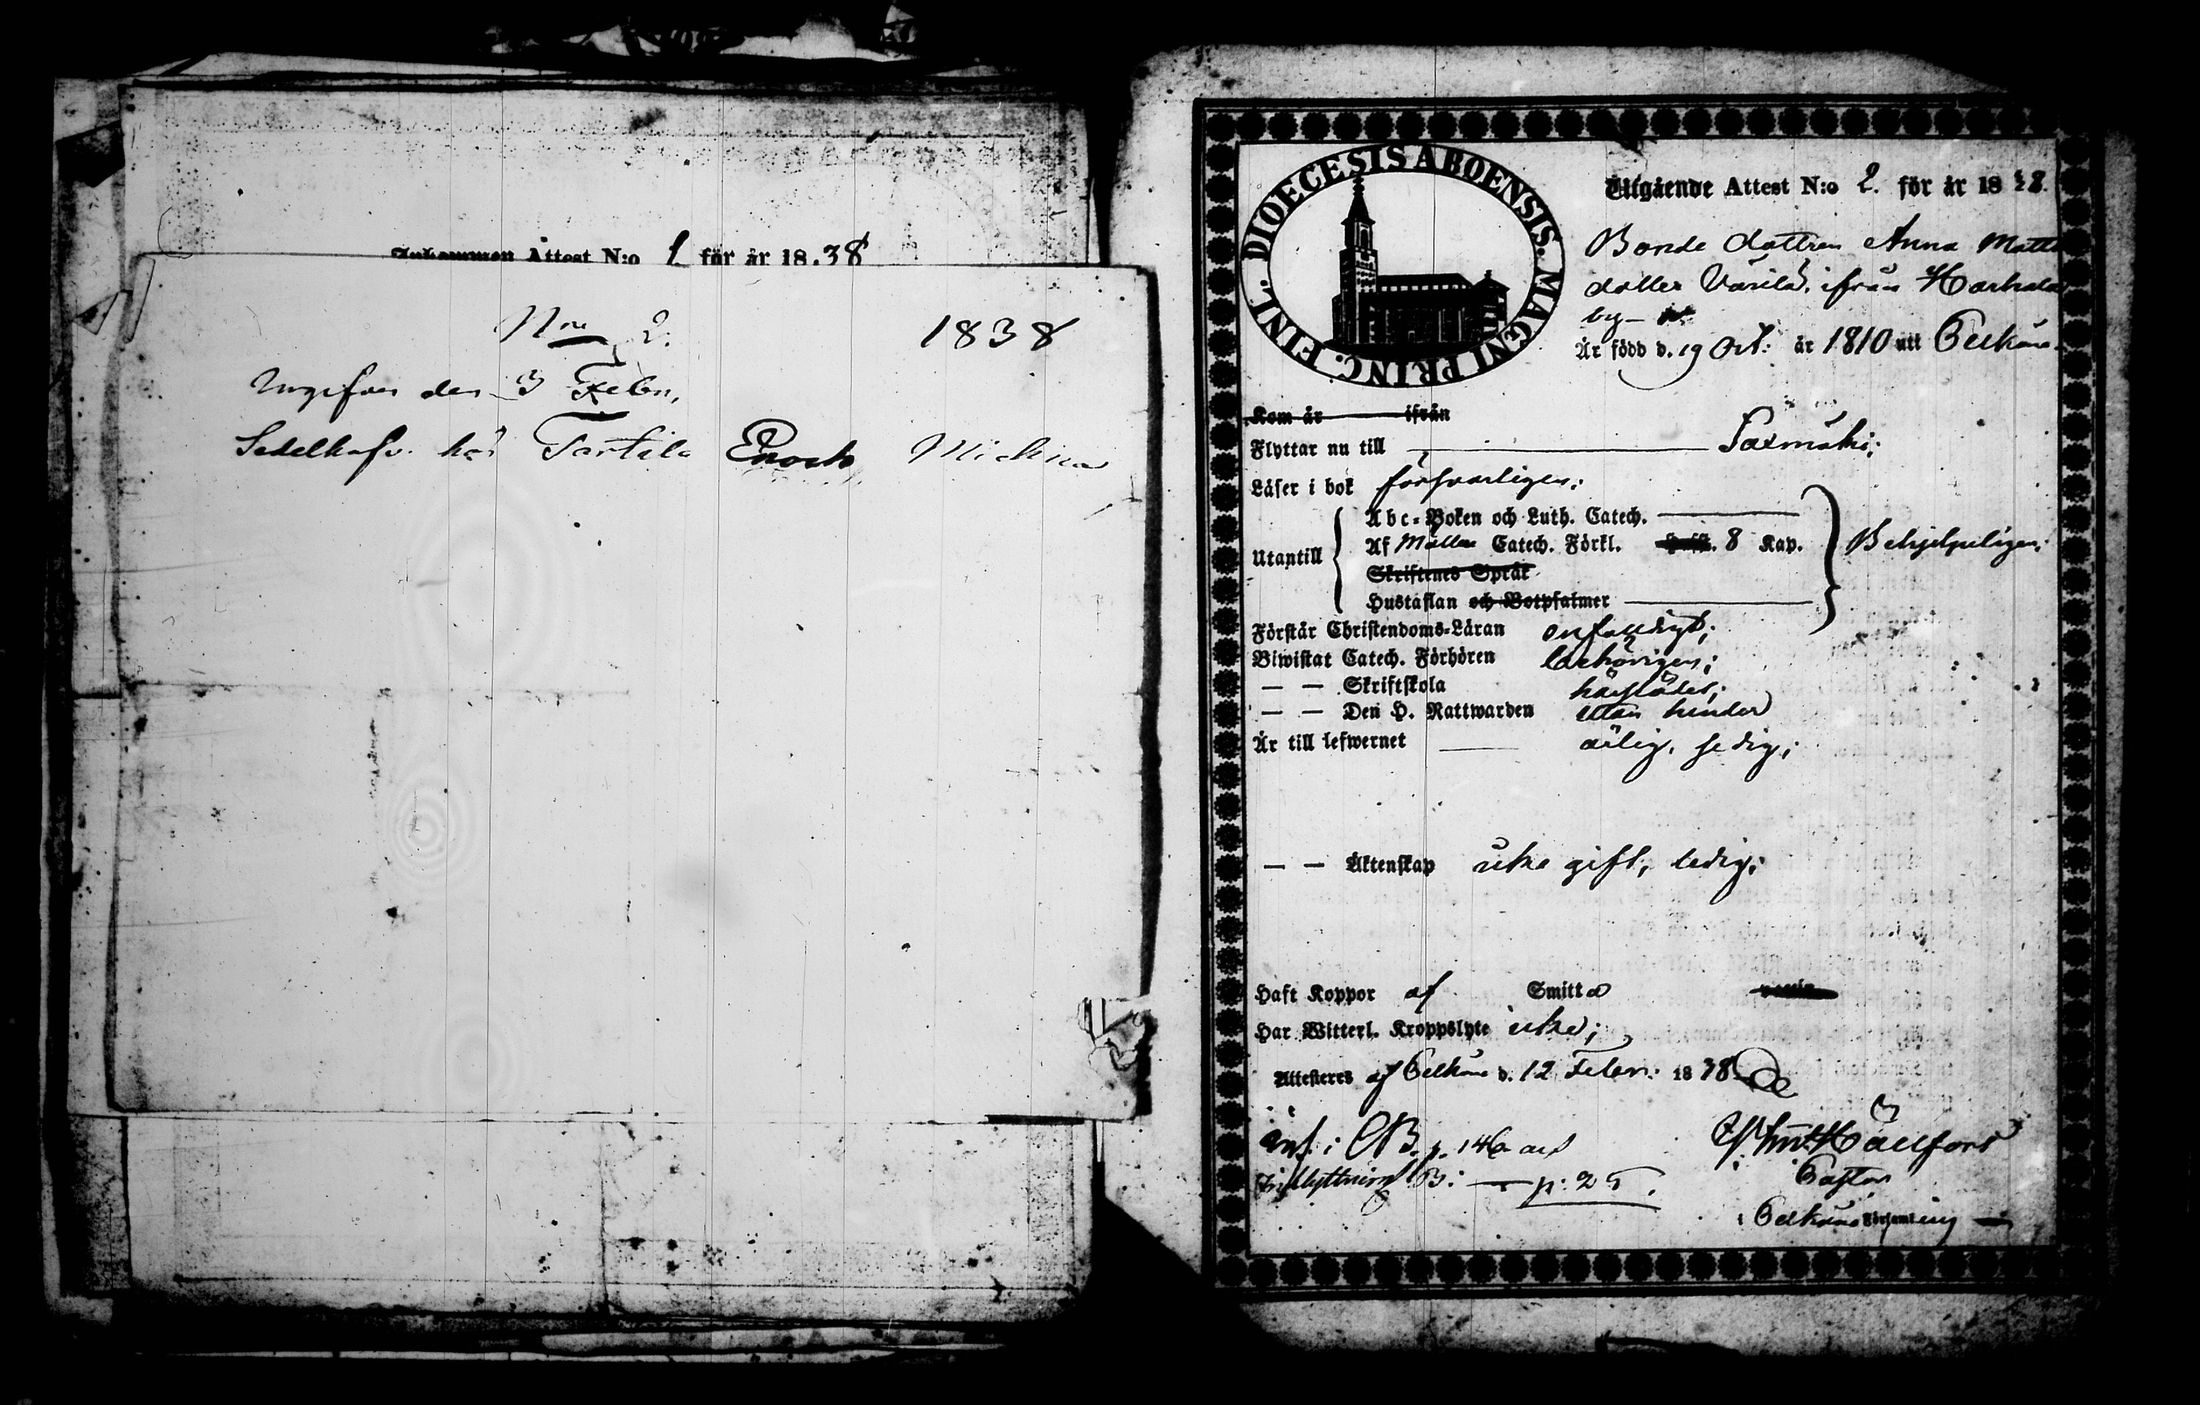 Inkommen Attest N:o 1 för år 18.38
Nro 2. 1838
den 3 Febr.
Enoch
DIOECESIS ABOENSIS. MAGNI PRINC. FINL.
Utgående Attest N:o 2. för år 1838.
Bonde dottren Anna Matts
dotter Varila, ifrån Harhala
by
Är född d. 19 Oct: år 1810 uti Pelkäne
Kom år ifrån
Flyttar nu till Saxmäki;
Läser i bok försvarligen;
Abc-Boken och Luth. Catech.
Utantill Af Möllers Catech. Förkl. 8 Kap. Behjelpeligen;
Skriftenes Språk
Hustaflan och Botpsalmer
Förstår Christendoms-Läran enfaldigt;
Biwistat Catech. Förhören behörigen;
— — Skriftskola härstädes;
— — Den H. Nattwarden utan hinder
Är till lefwernet ärlig, sedig;
— — Äktenskap icke gift, ledig;
Haft Koppor af Smitta
Har Witterl. Kroppslyte icke;
Attesteras af Pelkäne d. 12 Febr: 1838.
Inf: i CB. p. 146 och
Inflyttnings B: — p: 25.
Hällfors
Pastor
i Pelkäne Församling